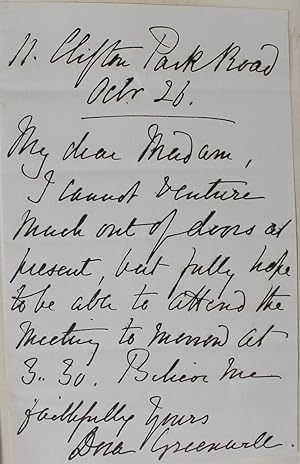 11. Clifton Park Road
Octr. 26.
My dear Madam,
I cannot venture
much out of doors at
present, but fully hope
to be able to attend the
Meeting to morrow at
3..30. Believe me
faithfully Yours
Dora Greenwell.